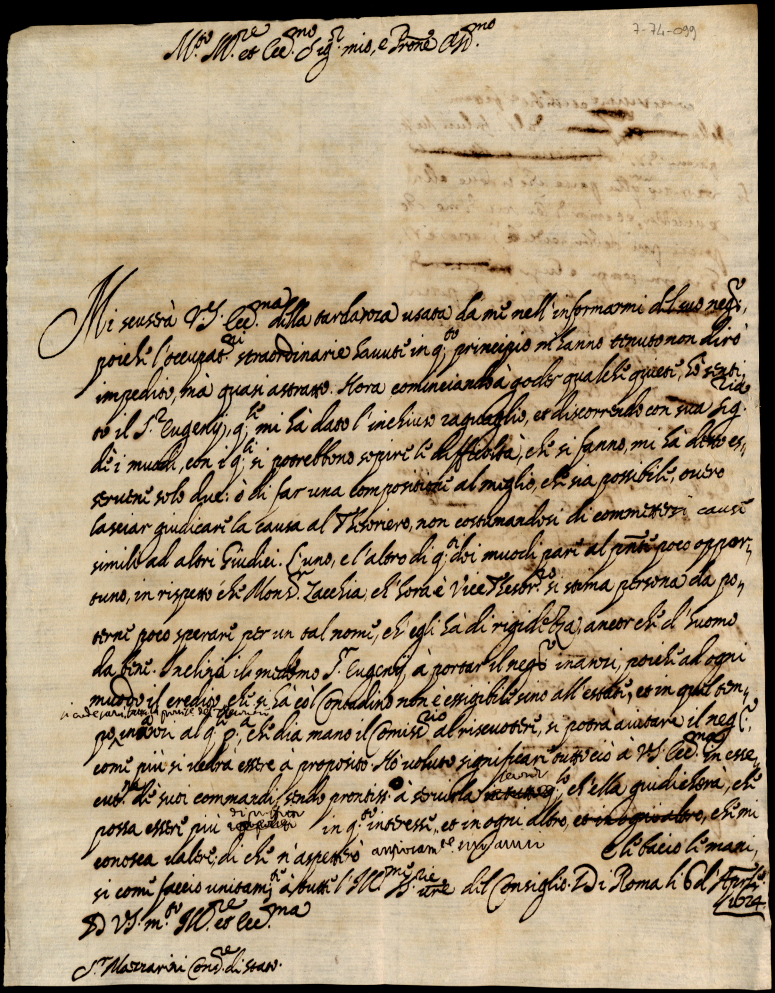 7-74-099
M.to Ill.re et Ecc.mo Sig.r mio, e Prone Oss.mo
Mi scuserà V.S. Ecc.ma della tardanza usata da me nell'informarmi del suo neg.o,
poiche l'occupat.ni straordinarie havute in q.to principio m'hanno tenuto non dirò
impedito, mà quasi astratto. Hora cominciando à goder qualche quiete, hò senti,
to il S.r Eugenij, q.le mi hà dato l'inchiuso raguaglio, et discorrendo con sua Sig.ria
de i muodi, con i q.li si potrebbono sopire le difficoltà, che si fanno, mi hà detto es,
servene solo due: ò di far una compositione al meglio, che sia possibile, overo
lasciar giudicare la causa al Thesoriero, non costumandosi di commettere cause
simili ad altri Giudici. L'uno, e l'altro di q.ti doi muodi pare al pnte poco oppor,
tuno, in rispetto che Mons.r Zacchia, ch'hora è Vice Thesor.ro si stima persona da po,
terne poco sperare per un tal nome, ch'egli hà di rigidezza, ancor che d'huomo
da bene. Inclina il medemo S.r Eugenij à portar il neg.o inanzi, poiche ad ogni
muodo il credito, che si hà col Contadino non è essigibile sino all'estate, et in quel tem,
po, al q.
che dia mano il Comiss.rio al riscuotere, si potrà aiutare il neg.o,
come più si vedrà essere à proposito. Hò voluto significare tutto ciò à V.S. Ecc.ma in esse,
cut.ne de suoi commandi, sendo prontiss.o à servirla ch'ella giudicherà, che
possa essere più in q.to interesse, et in ogni altro, et in ogni altro, che mi
conosca valere, di che n'aspetterò E le bacio le mani,
si come faccio unitam.te à tutti l'Ill.me S.rie ure del Consiglio. Di Roma li 6 d'Aprile
1624
D V.S. m.to Ill.re et Ecc.ma
S.r Mazzarini Cons.re di stato.